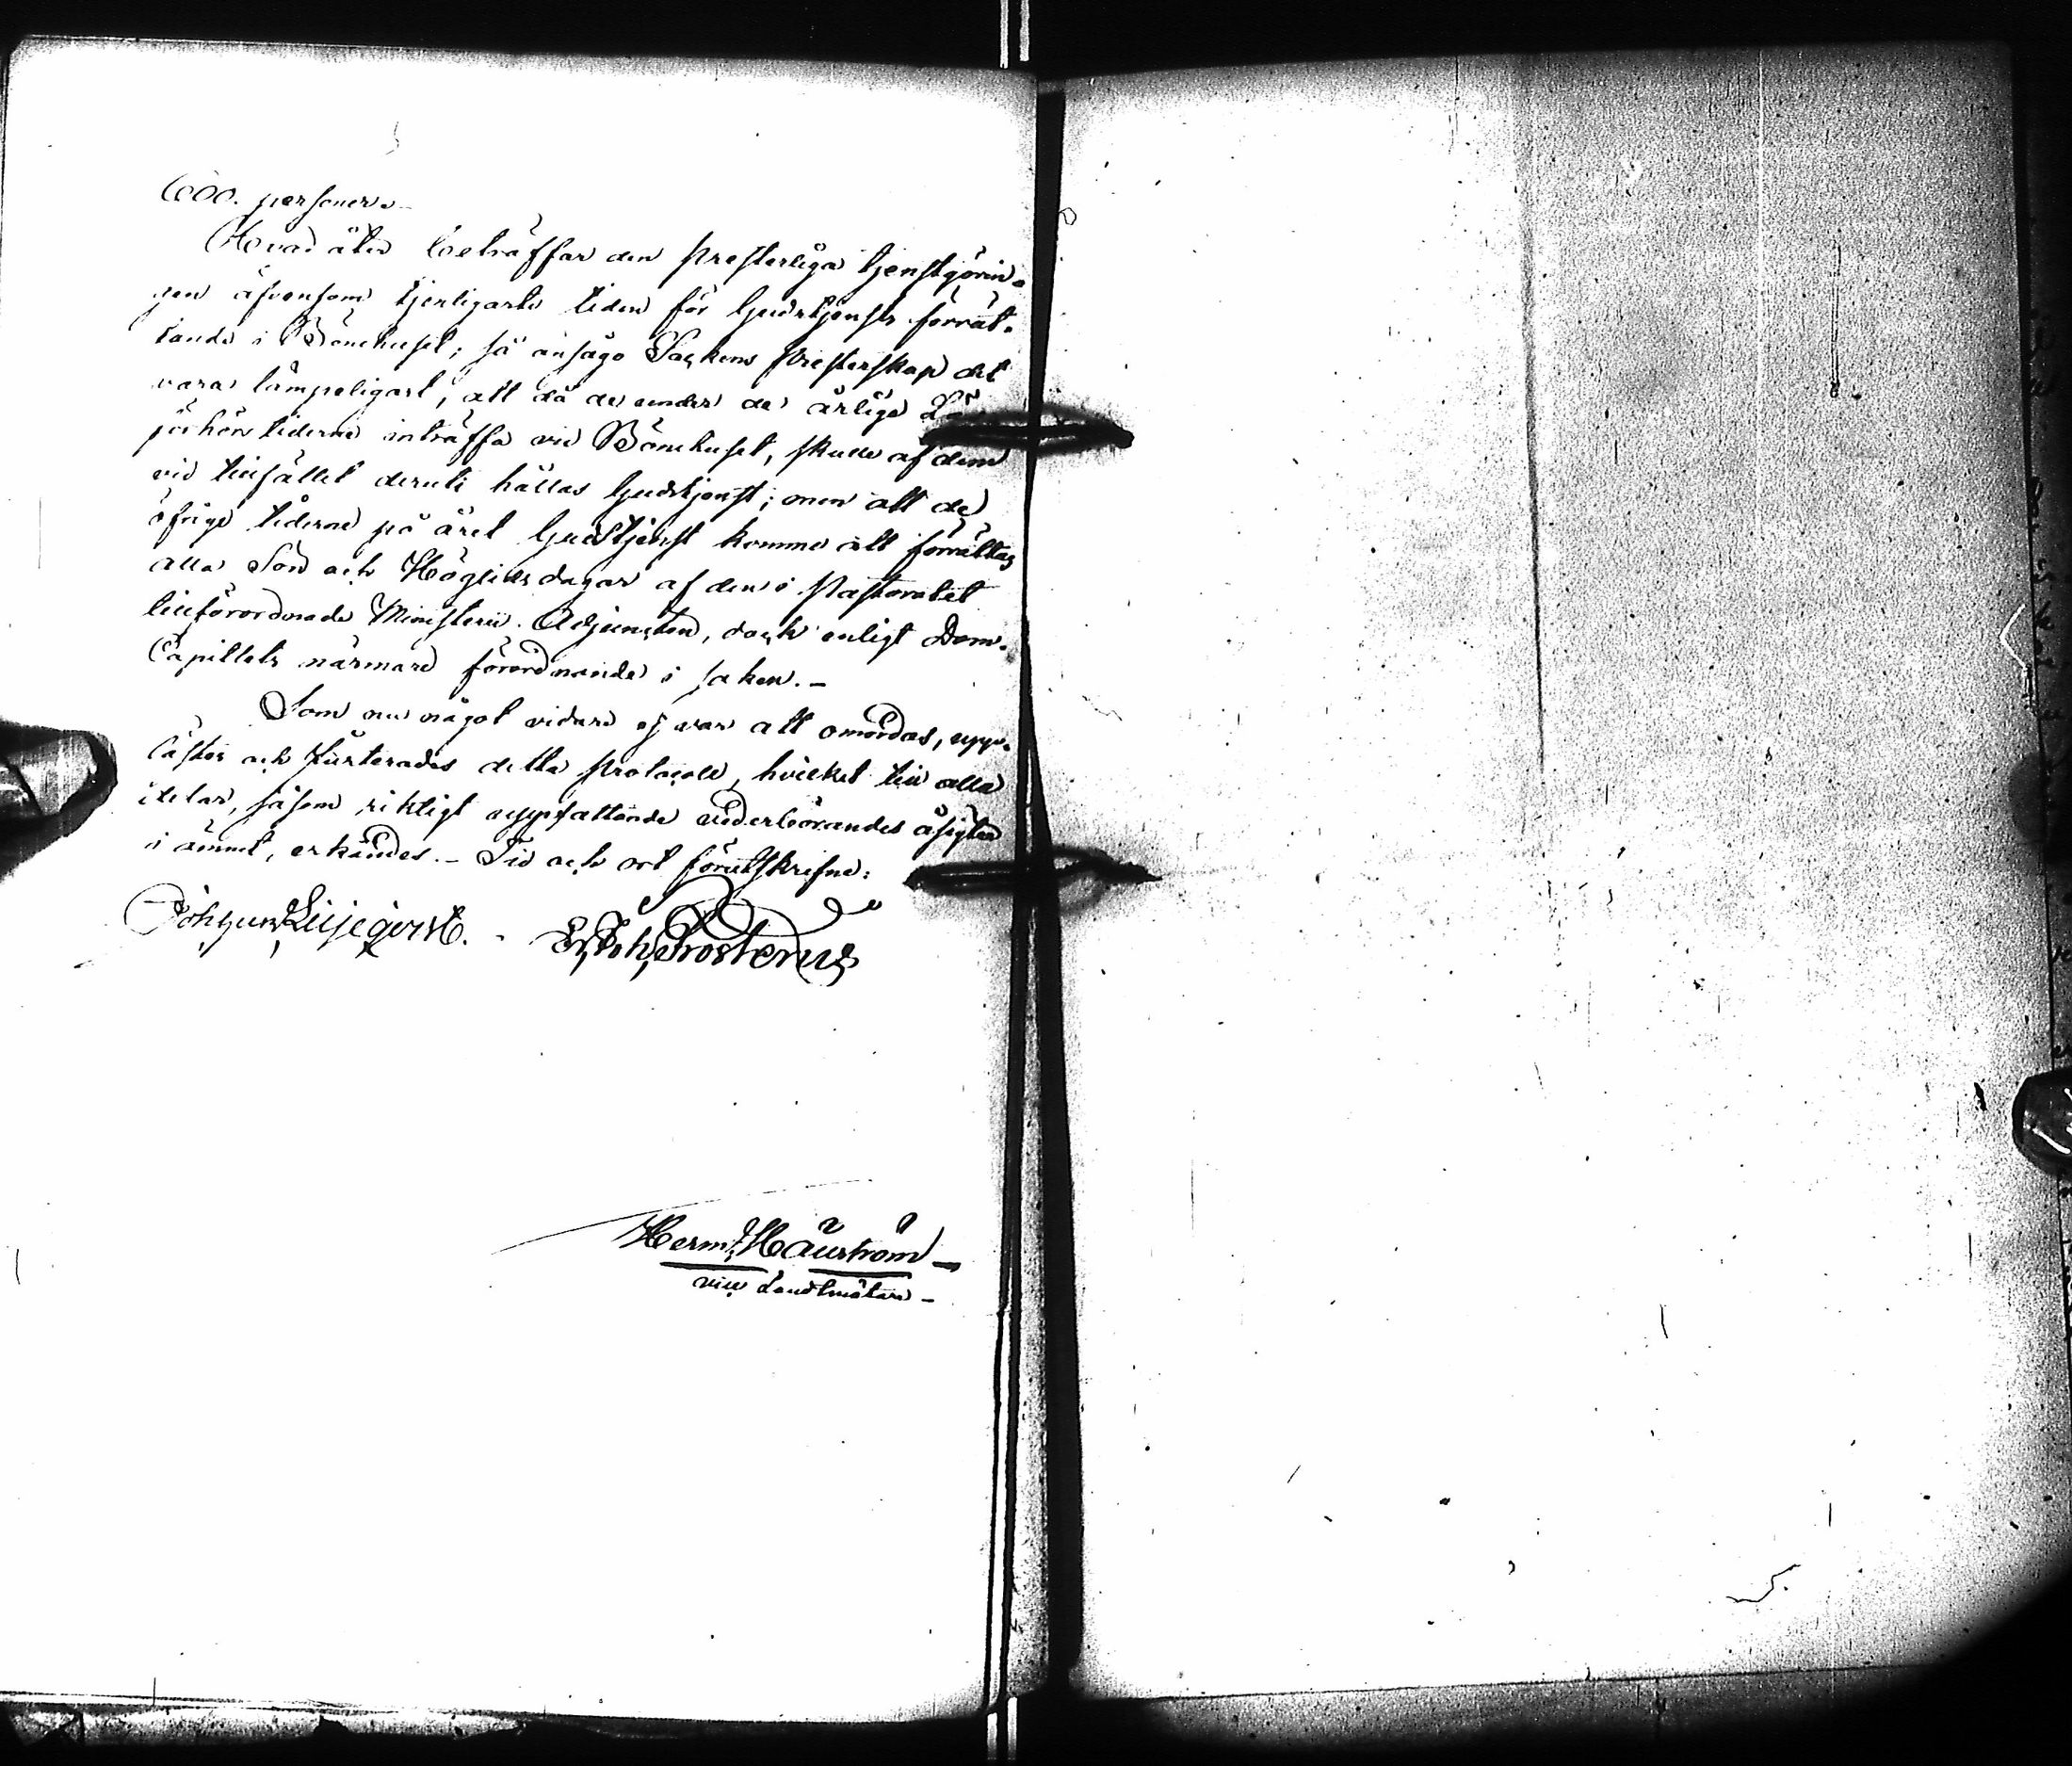 600. personer.-
Hvad åter beträffar den presterliga tjenstgörin-
gen äfvensom tjenligaste tiden för Gudstjensts förrät-
tande i Bönehuset; så ansågo Sockens Presterskap det
vara lämpeligast, att då de under de årliga Lä-
seförhörstiderne inträffa vid Bönehuset, skulle af dem
vid tillfället deruti hållas Gudstjenst; men att de
öfrige tiderne på året Gudstjenst komme att förrättas
alla Sön och Högtidsdagar af den i Pastoratet
tillförordnade Ministerii Adjuncten, dock enligt Dom-
Capitlets närmare förordnande i saken.-
Som nu något vidare ej var att omordas, upp-
lästes och justerades detta protocoll, hvilket till alla
delar, såsom riktigt uppfattande vederbörandes åsigter
i ämnet, erkändes.- Tid och ort förutskrifne:
Johan Liljeqvist. E. Joh. Frosterus
Herm. Hällström-
vice Landtmätare-